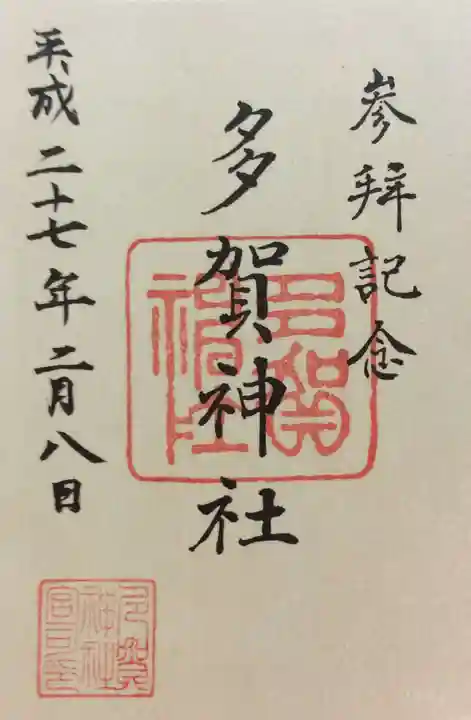 参拜記念
多賀神社
平成二十七年二月八日
多賀神社
多賀神社宮司印